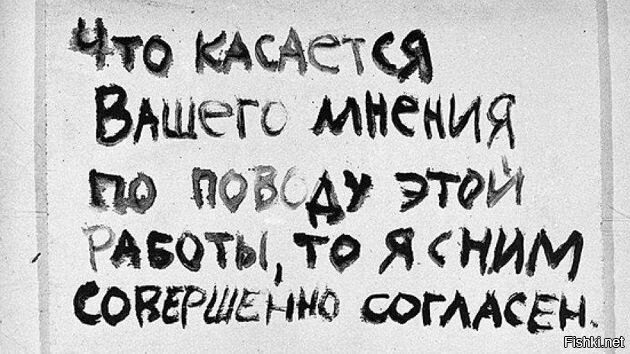 Что касается
Вашего мнения
по поводу этой
работы, то я с ним
совершенно согласен.
Fishki.net